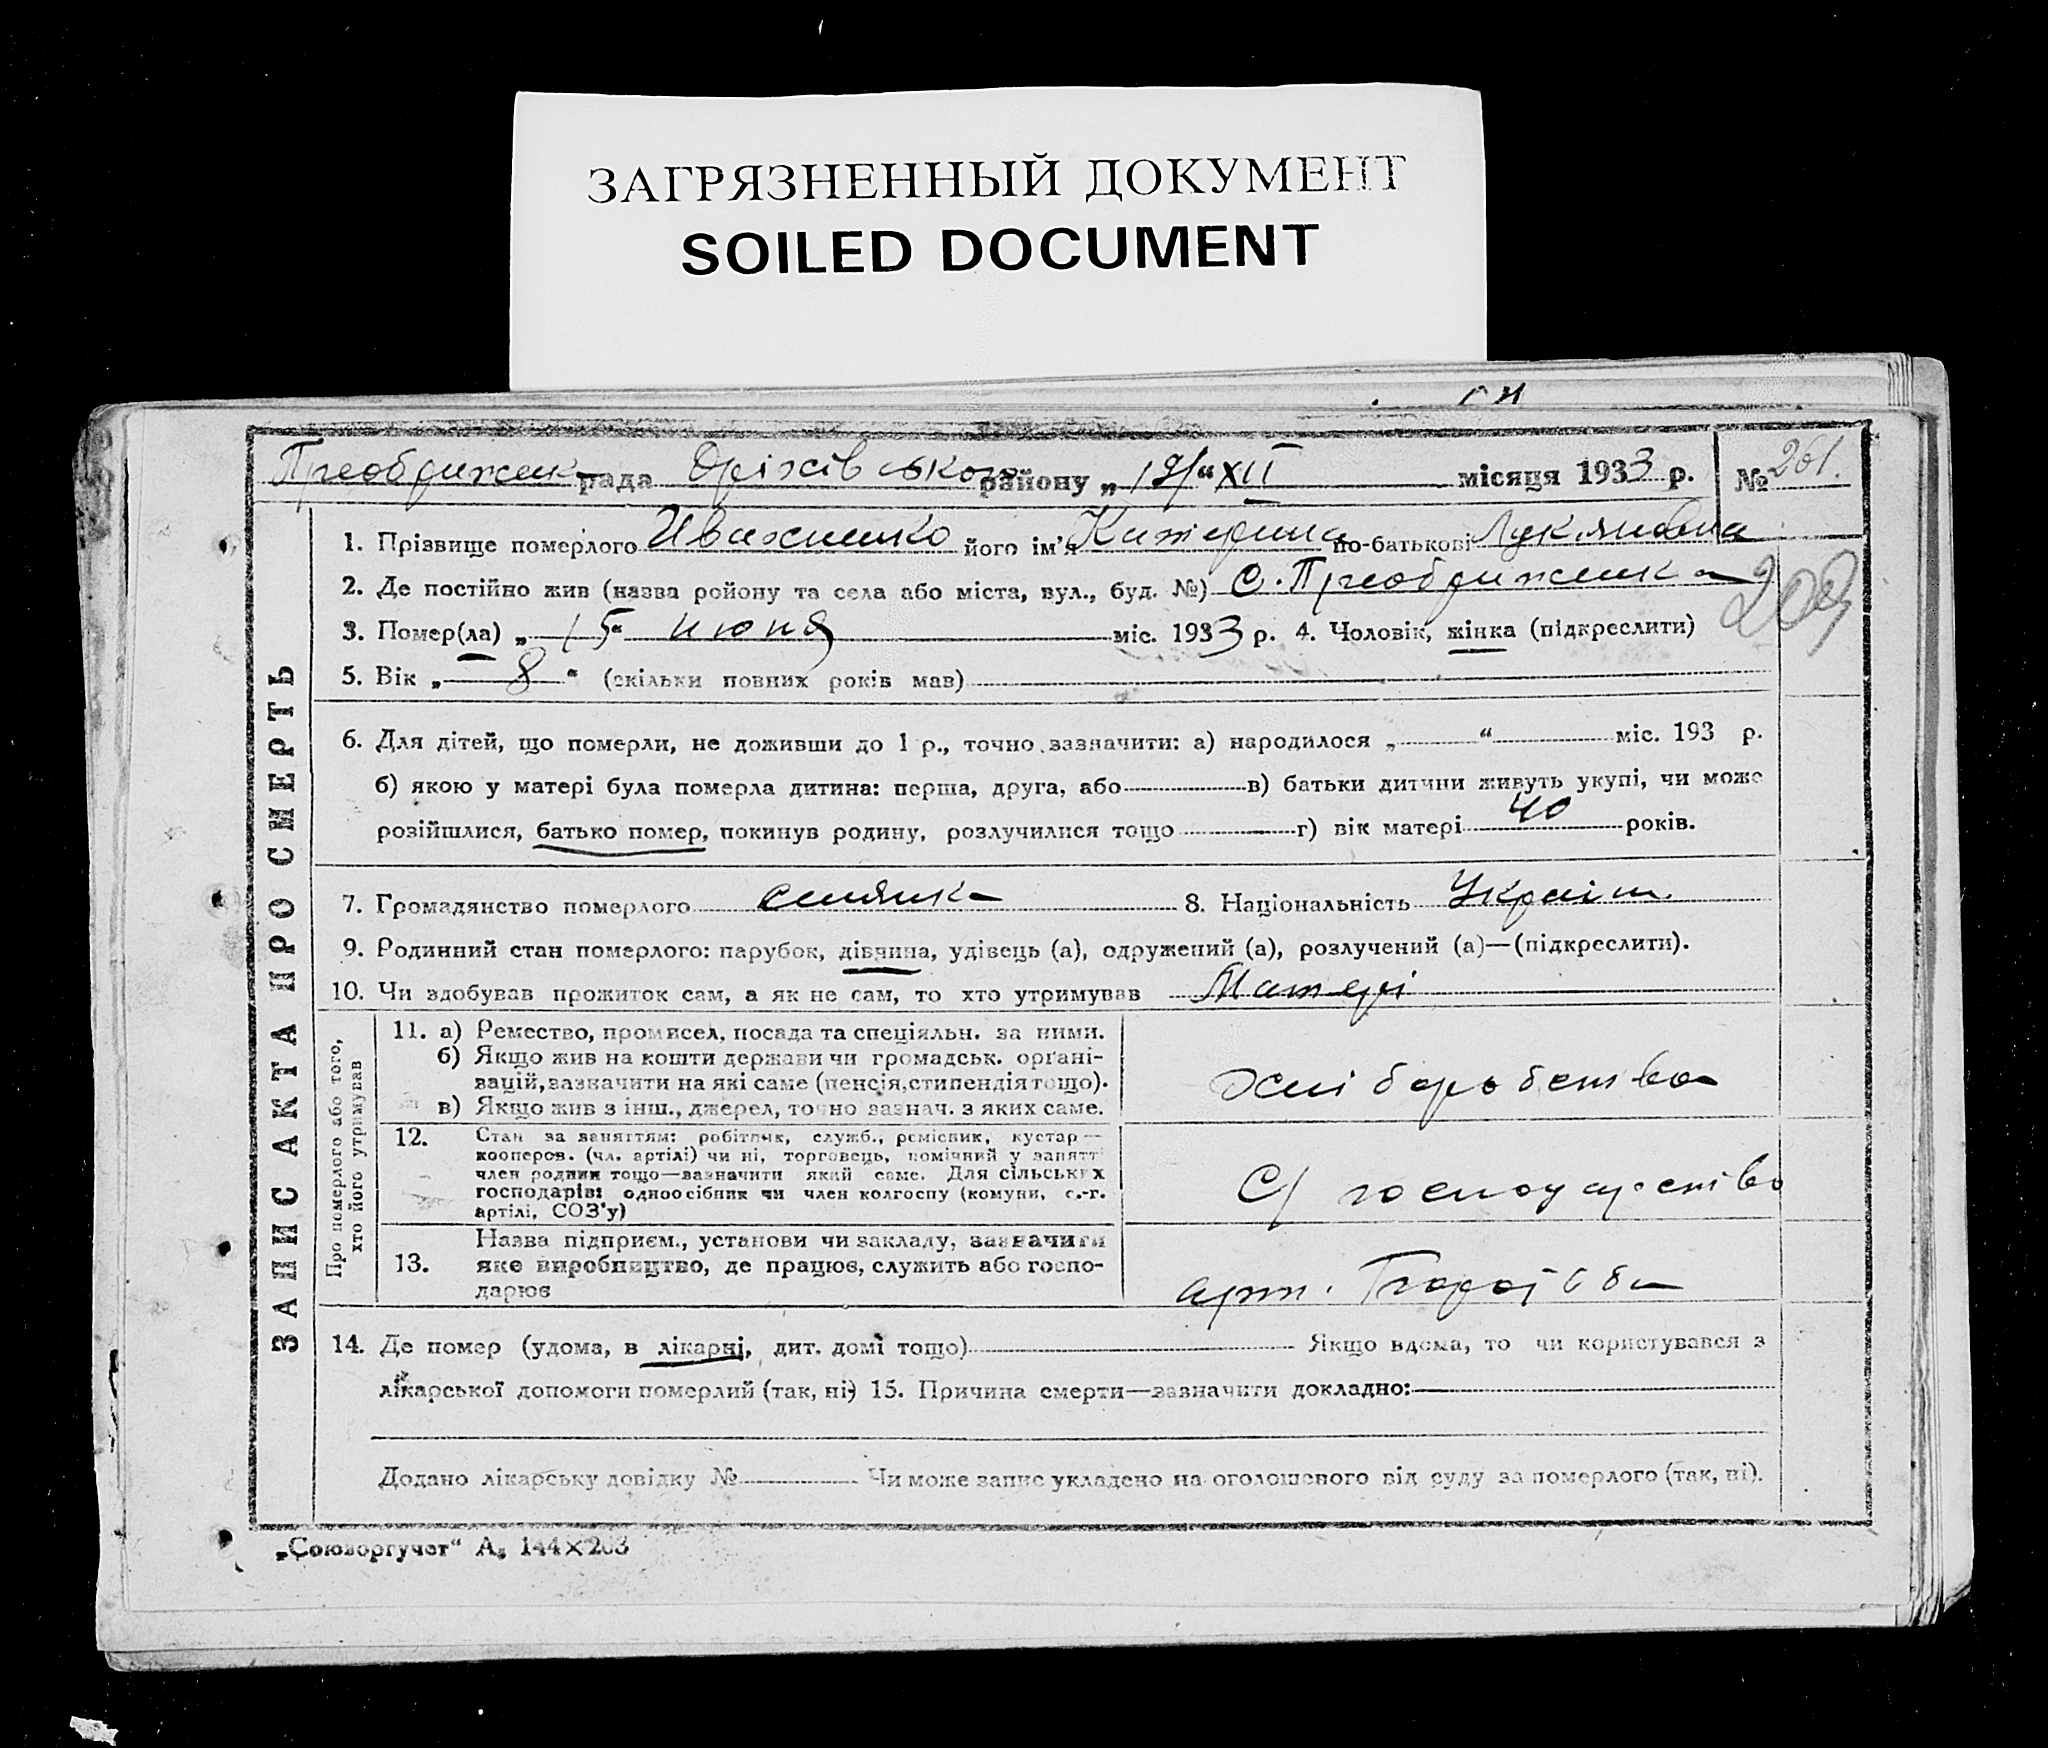 ЗАГРЯЗНЕННЫЙ ДОКУМЕНТ
SOILED DOCUMENT
Преображенк рада Оріхівського району „19“ XII місяця 1933 р. № 261.
1. Прізвище померлого Ивахненко його ім'я Катерина по-батькові Лукяновна
2. Де постійно жив (назва ройону та села або міста, вул., буд. №) с. Преображенка
209
3. Помер(ла) „15“ июня міс. 1933 р. 4. Чоловік, жінка (підкреслити)
5. Вік „8“ (скільки повних років мав)
6. Для дітей, що померли, не доживши до 1 р., точно зазначити: а) народилося „ “ міс. 193 р.
б) якою у матері була померла дитина: перша, друга, або в) батьки дитини живуть укупі, чи може
розійшлися, батько помер, покинув родину, розлучилися тощо г) вік матері 40 років.
7. Громадянство померлого селянка 8. Національність Україн.
9. Родинний стан померлого: парубок, дівчина, удівець (а), одружений (а), розлучений (а)—(підкреслити).
10. Чи здобував прожиток сам, а як не сам, то хто утримував Матері
ЗАПИС АКТА ПРО СМЕРТЬ
Про померлого або того, хто його утримував
11. а) Ремество, промисел, посада та спеціяльн. за ними.
б) Якщо жив на кошти держави чи громадськ. організацій, зазначити на які саме (пенсія, стипендія тощо).
в) Якщо жив з інш., джерел, точно зазнач. з яких саме.
хліборобство
12. Стан за заняттям: робітник, служб., ремісник, кустар—
кооперов. (чл. артілі) чи ні, торговець, помічний у занятті
член родини тощо—зазначити який саме. Для сільських
господарів: одноосібник чи член колгоспу (комуни, с.-г.
артілі, СОЗ'у)
С/господарство
13. Назва підприєм., установи чи закладу, зазначити
яке виробництво, де працює, служить або господарює
арт.
14. Де помер (удома, в лікарні, дит. домі тощо) Якщо вдома, то чи користувався з
лікарської допомоги померлий (так, ні) 15. Причина смерти—зазначити докладно:
Додано лікарську довідку № Чи може запис укладено на оголошеного від суду за померлого (так, ні).
„Союзоргучет“ А₅ 144×203